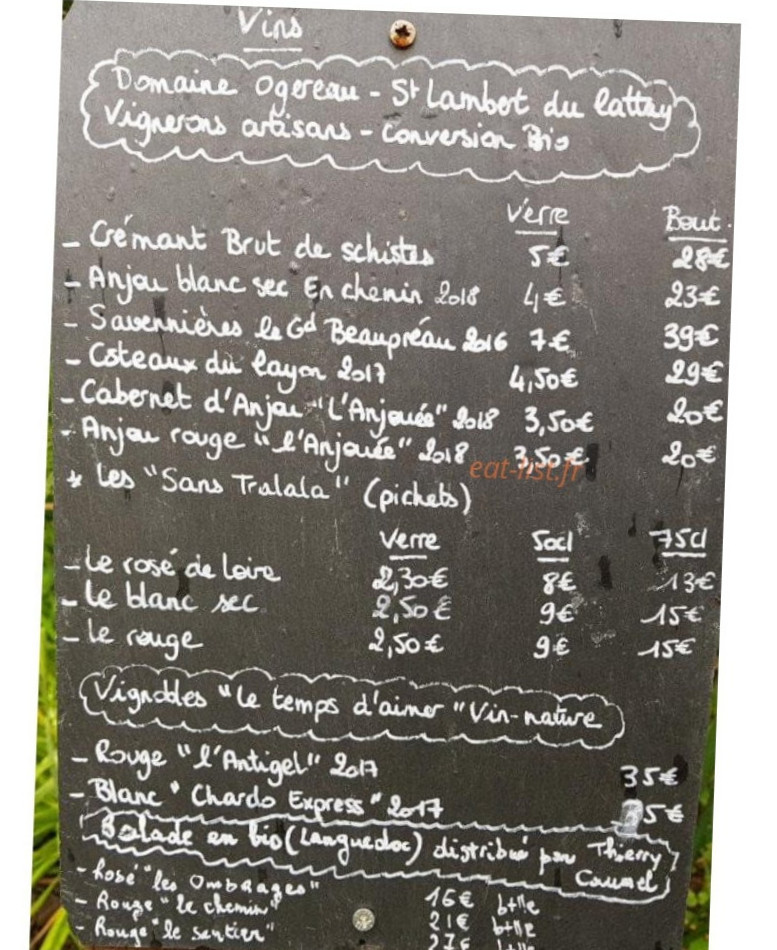 Vins
Domaine Ogereau - St Lambert du Lattay
Vignerons artisans - Conversion Bio
Verre Bout.
- Crémant Brut de schistes 5€ 28€
- Anjou blanc sec En chenin 2018 4€ 23€
- Savennières le Gd Beaupréau 2016 7€ 39€
- Coteaux du layon 2017 4,50€ 29€
- Cabernet d'Anjou "L'Anjouée" 2018 3,50€ 20€
- Anjou rouge "l'Anjouée" 2018 3,50€ 20€
eat-list.fr
* Les "Sans Tralala" (pichets)
Verre 50cl 75cl
- Le rosé de Loire 2,30€ 8€ 13€
- Le blanc sec 2,50€ 9€ 15€
- Le rouge 2,50€ 9€ 15€
Vignobles "Le temps d'aimer" Vin-nature
- Rouge "l'Antigel" 2017 35€
- Blanc "Chardo Express" 2017 5€
Balade en bio (Languedoc) distribué par Thierry
- Rosé "les Ombrages" 16€ btlle
- Rouge "le chemin" 21€ btlle
- Rouge "le sentier" 27€ btlle